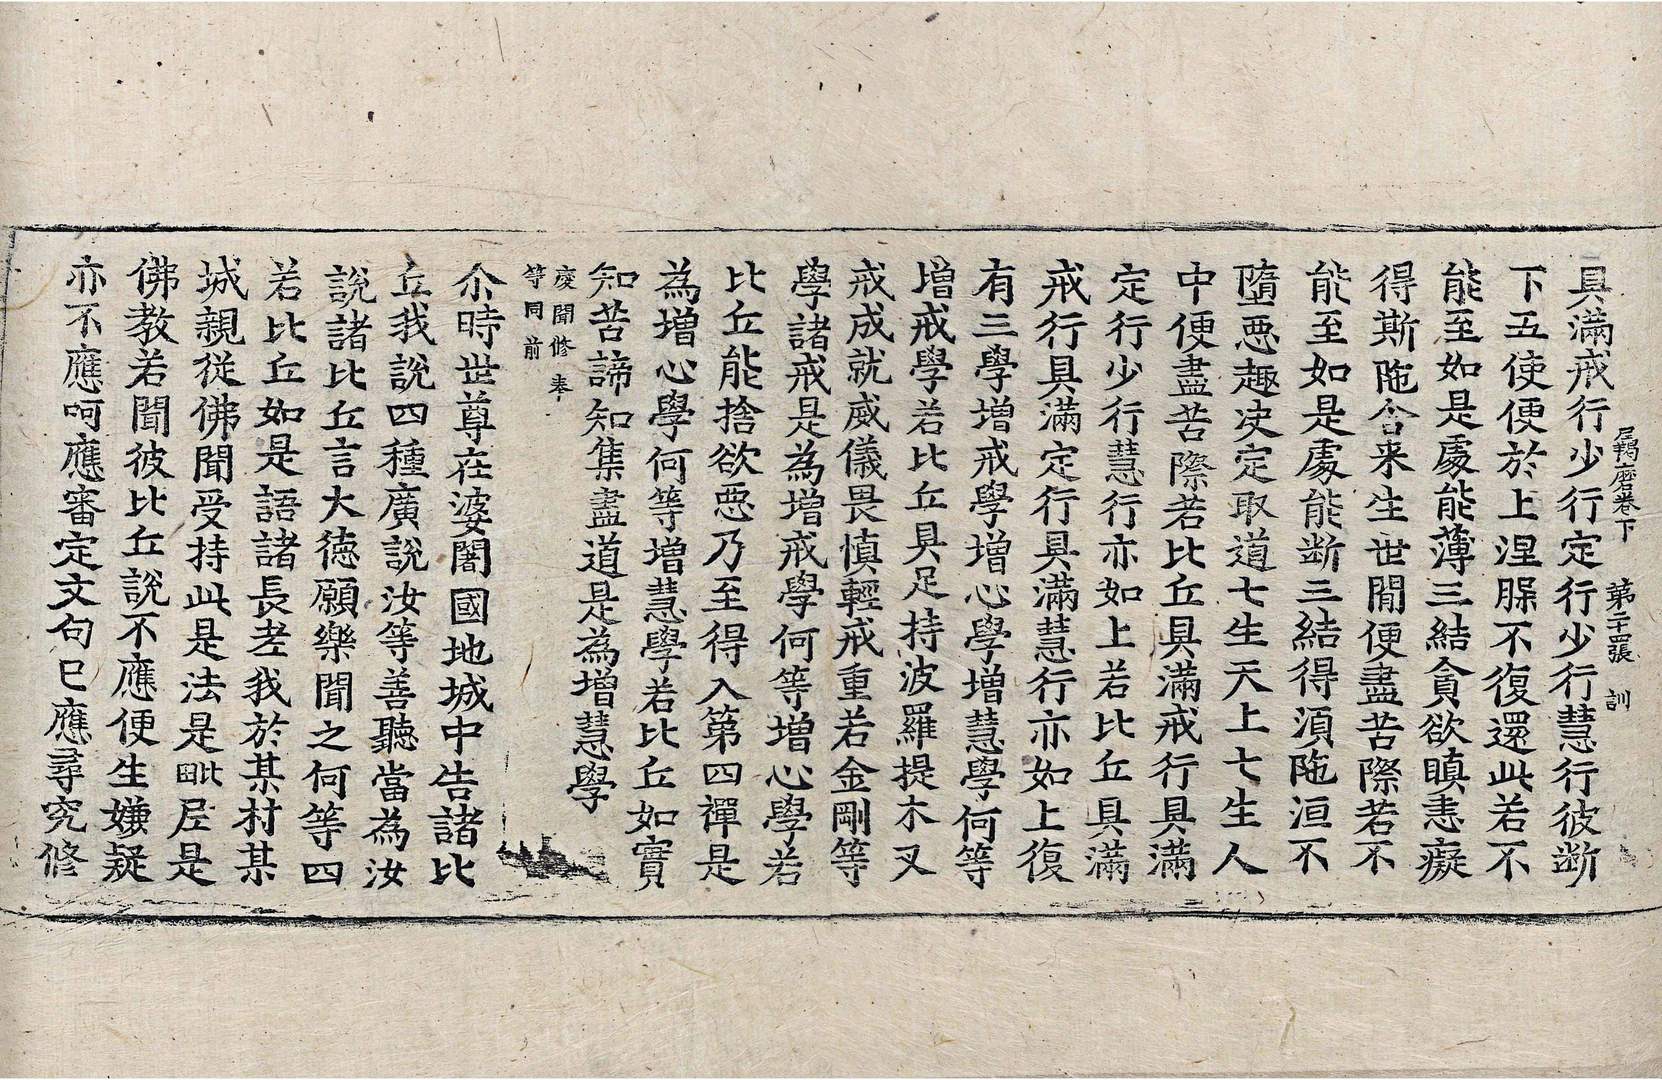 尼羯磨卷下 第二十四張 訓
具滿戒行少行定行少行慧行彼断
下五使便於上涅槃不復還此若不
能至如是處能薄三結貪欲瞋恚癡
得斯陁含来生世閒便盡苦際若不
能至如是處能断三結得湏陁洹不
墮惡趣決定取道七生天上七生人
中便盡苦際若比丘具滿戒行具滿
定行少行慧行亦如上若比丘具滿
戒行具滿定行具滿慧行亦如上復
有三學增戒學增心學增慧學何等
增戒學若比丘具足持波羅提木叉
戒成就威儀畏慎輕戒重若金剛等
學諸戒是為增戒學何等增心學若
比丘能捨欲惡乃至得入第四禪是
為增心學何等增慧學若比丘如實
知苦諦知集盡道是為增慧學
度開修奉
等同前
尒時世尊在婆闍國地城中告諸比
丘我說四種廣說汝等善聽當為汝
說諸比丘言大德願樂聞之何等四
若比丘如是語諸長老我於某村某
城親從佛聞受持此是法是毗尼是
佛教若聞彼比丘說不應便生嫌疑
亦不應呵應審定文句已應尋究修